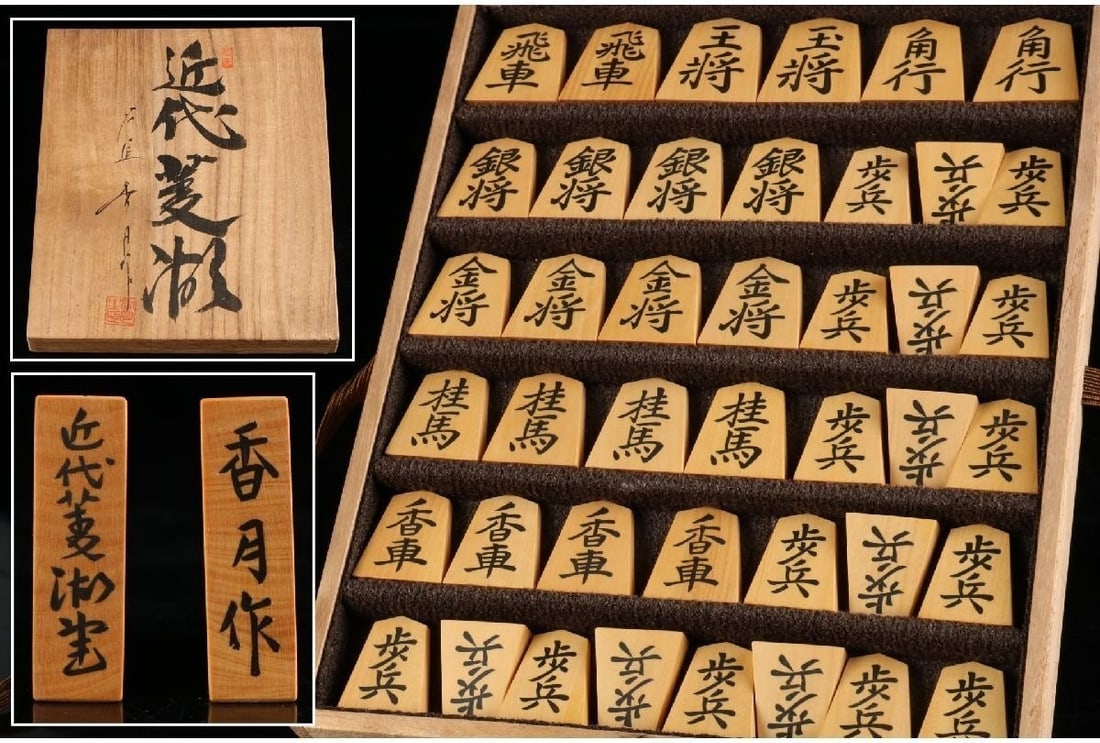 近代菱湖
香月作
近代菱湖
香月作
飛車 飛車 王将 玉将 角行 角行
銀将 銀将 銀将 銀将 歩兵 歩兵 歩兵
金将 金将 金将 金将 歩兵 歩兵 歩兵
桂馬 桂馬 桂馬 桂馬 歩兵 歩兵 歩兵
香車 香車 香車 香車 歩兵 歩兵 歩兵
歩兵 歩兵 歩兵 歩兵 歩兵 歩兵 歩兵 歩兵